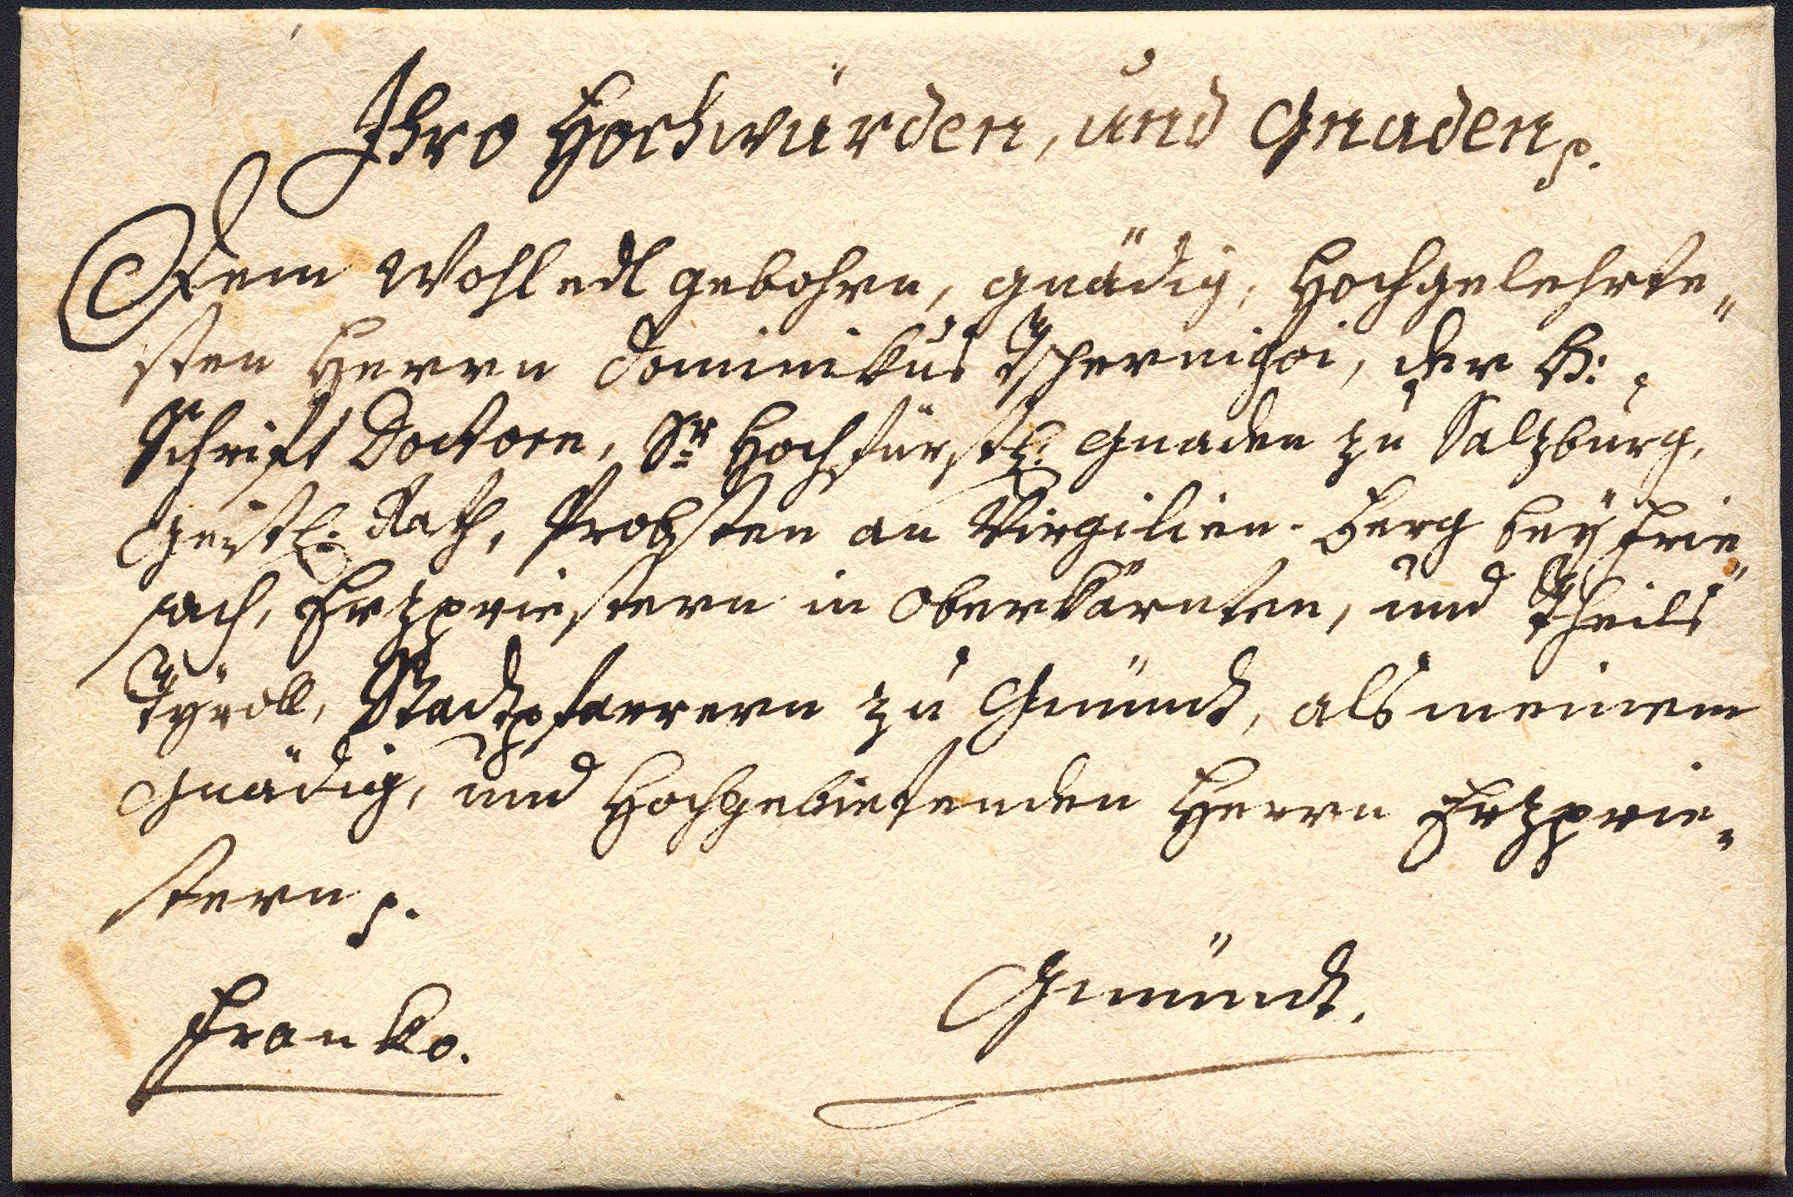 Ihro Hochwürden, und Gnaden p.
Dem Wohledl gebohrn, gnädig, Hochgelehrte„
sten Herrn Dominikus Tschernigoi, der H:
Schrift Doctorn, Sr Hochfürstl: Gnaden zu Salzburg,
Geistl: Rath, Probsten an Virgilien-Berg bey Frie„
sach, Erzpriestern in Oberkärnten, und Theils
Tyroll, Stadtpfarrern zu Gmünd, als meinem
Gnädig, und Hochgebietenden Herrn Erzprie„
stern p.
Franko.
Gmünd.